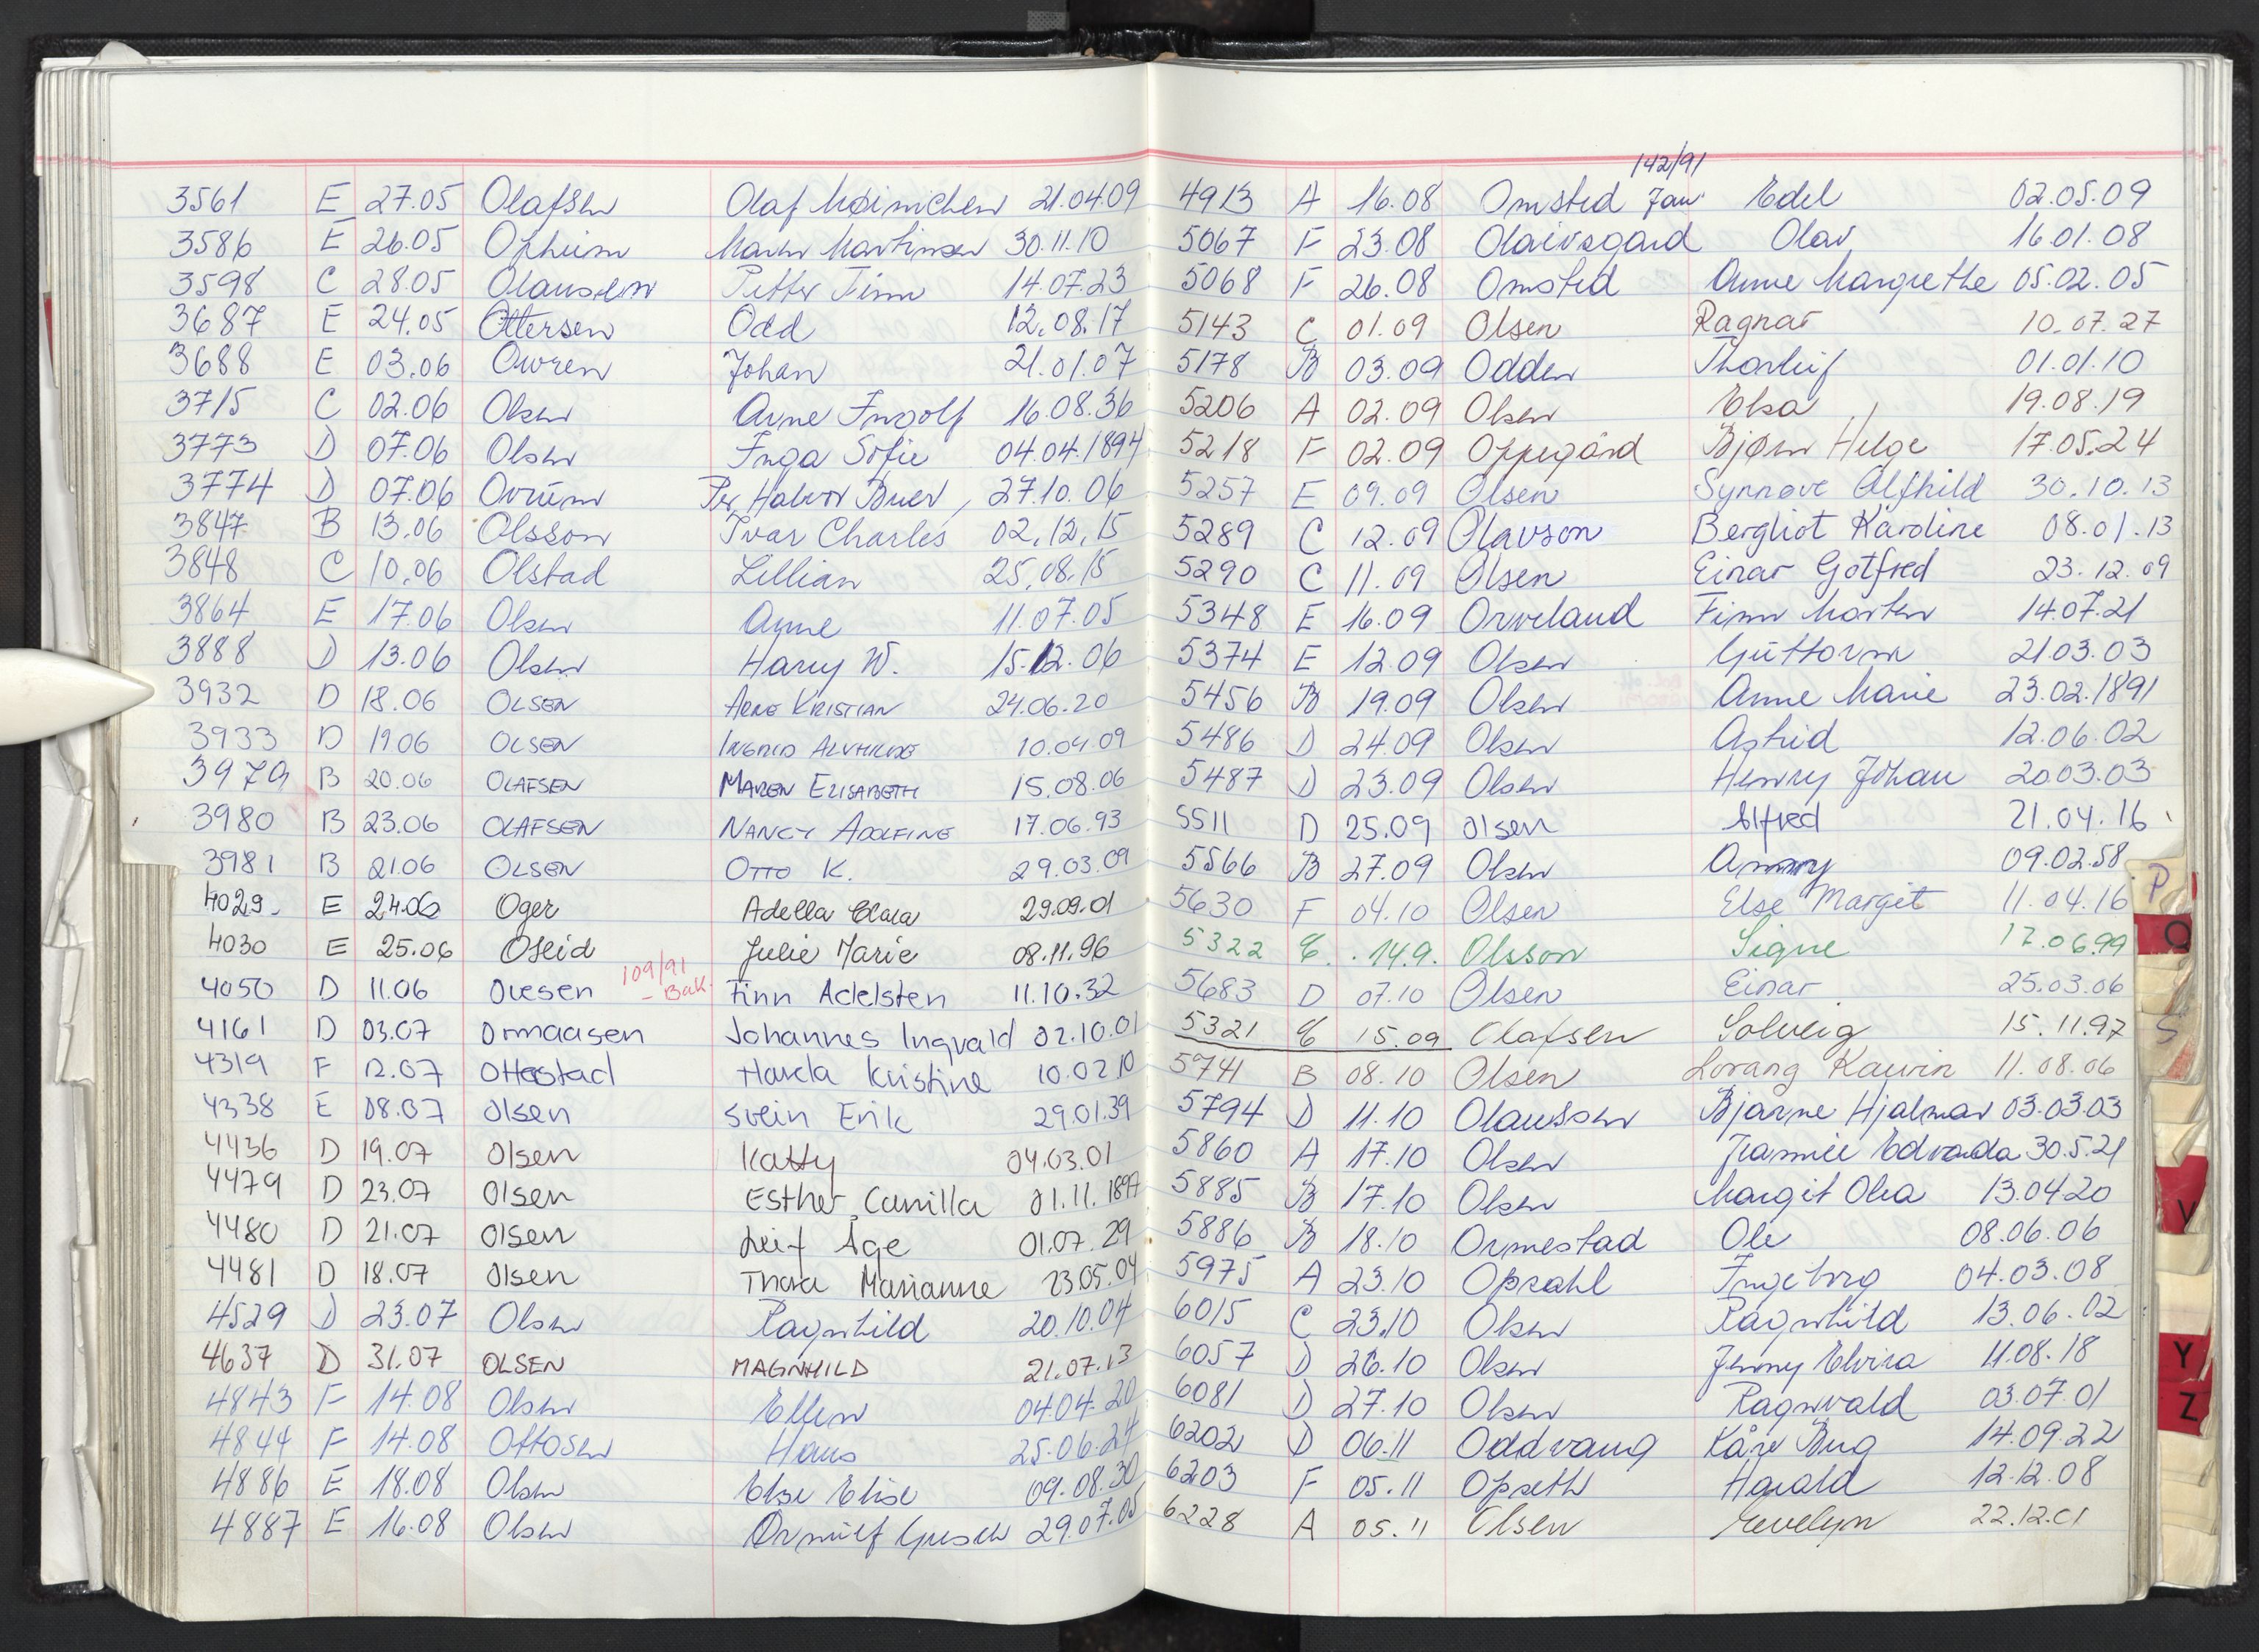 3561 E 27.05 Olafsen Olaf Meinichen 21.04.09
3586 E 26.05 Opheim Martinsen 30.11.10
3598 C 28.05 Olaussen Petter Finn 14.07.23
3687 E 24.05 Ottersen Odd 12.08.17
3688 E 03.06 Owren Johan 21.01.07
3715 C 02.06 Olsen Arne Ingolf 16.08.36
3773 D 07.06 Olsen Inga Sofie 04.04.1894
3774 D 07.06 Ovrum Per Halvor Buer, 27.10.06
3847 B 13.06 Olsson Ivar Charles 02.12.15
3848 C 10.06 Olstad Lillian 25.08.15
3864 E 17.06 Olsen Anne 11.07.05
3888 D 13.06 Olsen Harry W. 15.12.06
3932 D 18.06 OLSEN ARNE KRISTIAN 24.06.20
3933 D 19.06 OLSEN INGRID ALVHILDE 10.04.09
3979 B 20.06 OLAFSEN MAREN ELISABETH 15.08.06
3980 B 23.06 OLAFSEN NANCY ADOLFINE 17.06.93
3981 B 21.06 OLSEN OTTO K. 29.03.09
4029 E 24.06 Oger Adella Clara 29.09.01
4030 E 25.06 Oseid Julie Marie 08.11.96
109/91
4050 D 11.06 Olesen - Bak. Finn Adelsten 11.10.32
4161 D 03.07 Ormaasen Johannes Ingvald 02.10.01
4319 F 12.07 Ottestad Harda Kristine 10.02.10
4338 E 08.07 Olsen Svein Erik 29.01.39
4436 D 19.07 Olsen Katty 04.03.01
4479 D 23.07 Olsen Esther Camilla 01.11.1897
4480 D 21.07 Olsen Leif Åge 01.07.29
4481 D 18.07 Olsen Thora Marianne 23.05.04
4529 D 23.07 Olsen Ragnhild 20.10.04
4637 D 31.07 OLSEN MAGNHILD 21.07.13
4843 F 14.08 Olsen Ellen 04.04.20
4844 F 14.08 Ottosen Hans 25.06.24
4886 E 18.08 Olsen Else Elise 09.08.30
4887 E 16.08 Olsen Ørnulf 29.07.05
142/91
4913 A 16.08 Omsted Jan Edel 02.05.09
5067 F 23.08 Olaivsgard Olav 16.01.08
5068 F 26.08 Omsted Anne Margrethe 05.02.05
5143 C 01.09 Olsen Ragnar 10.07.27
5178 B 03.09 Odden Thorleif 01.01.10
5206 A 02.09 Olsen Elsa 19.08.19
5218 F 02.09 Oppegård Bjørn Helge 17.05.24
5257 E 09.09 Olsen Synnøve Alfhild 30.10.13
5289 C 12.09 Olavson Bergliot Karoline 08.01.13
5290 C 11.09 Olsen Einar Gotfred 23.12.09
5348 E 16.09 Orveland Finn Morten 14.07.21
5374 E 12.09 Olsen Guttorm 21.03.03
5456 B 19.09 Olsen Anne Marie 23.02.1891
5486 D 24.09 Olsen Astrid 12.06.02
5487 D 23.09 Olsen Henry Johan 20.03.03
5511 D 25.09 Olsen Alfred 21.04.16
5566 B 27.09 Olsen Anny 09.02.58
5630 F 04.10 Olsen Else Margit 11.04.16
5322 E 14.9. Olsson Signe 17.06.99
5683 D 07.10 Olsen Einar 25.03.06
5321 E 15.09 Olafsen Solveig 15.11.97
5741 B 08.10 Olsen Lorang Kaurin 11.08.06
5794 D 11.10 Olaussen Bjarne Hjalmar 03.03.03
5860 A 17.10 Olsen Edvarda 30.5.21
5885 B 17.10 Olsen Margit Olea 13.04.20
5886 B 18.10 Ormestad Ole 08.06.06
5975 A 23.10 Opsahl Ingeborg 04.03.08
6015 C 23.10 Olsen Ragnhild 13.06.02
6057 D 26.10 Olsen Jenny Elvira 11.08.18
6081 D 27.10 Olsen Ragnvald 03.07.01
6202 D 06.11 Oddvang Kåre Bug 14.09.22
6203 F 05.11 Opseth Harald 12.12.08
6228 A 05.11 Olsen Evelyn 22.12.01
P
Q
S
V
Y
Z